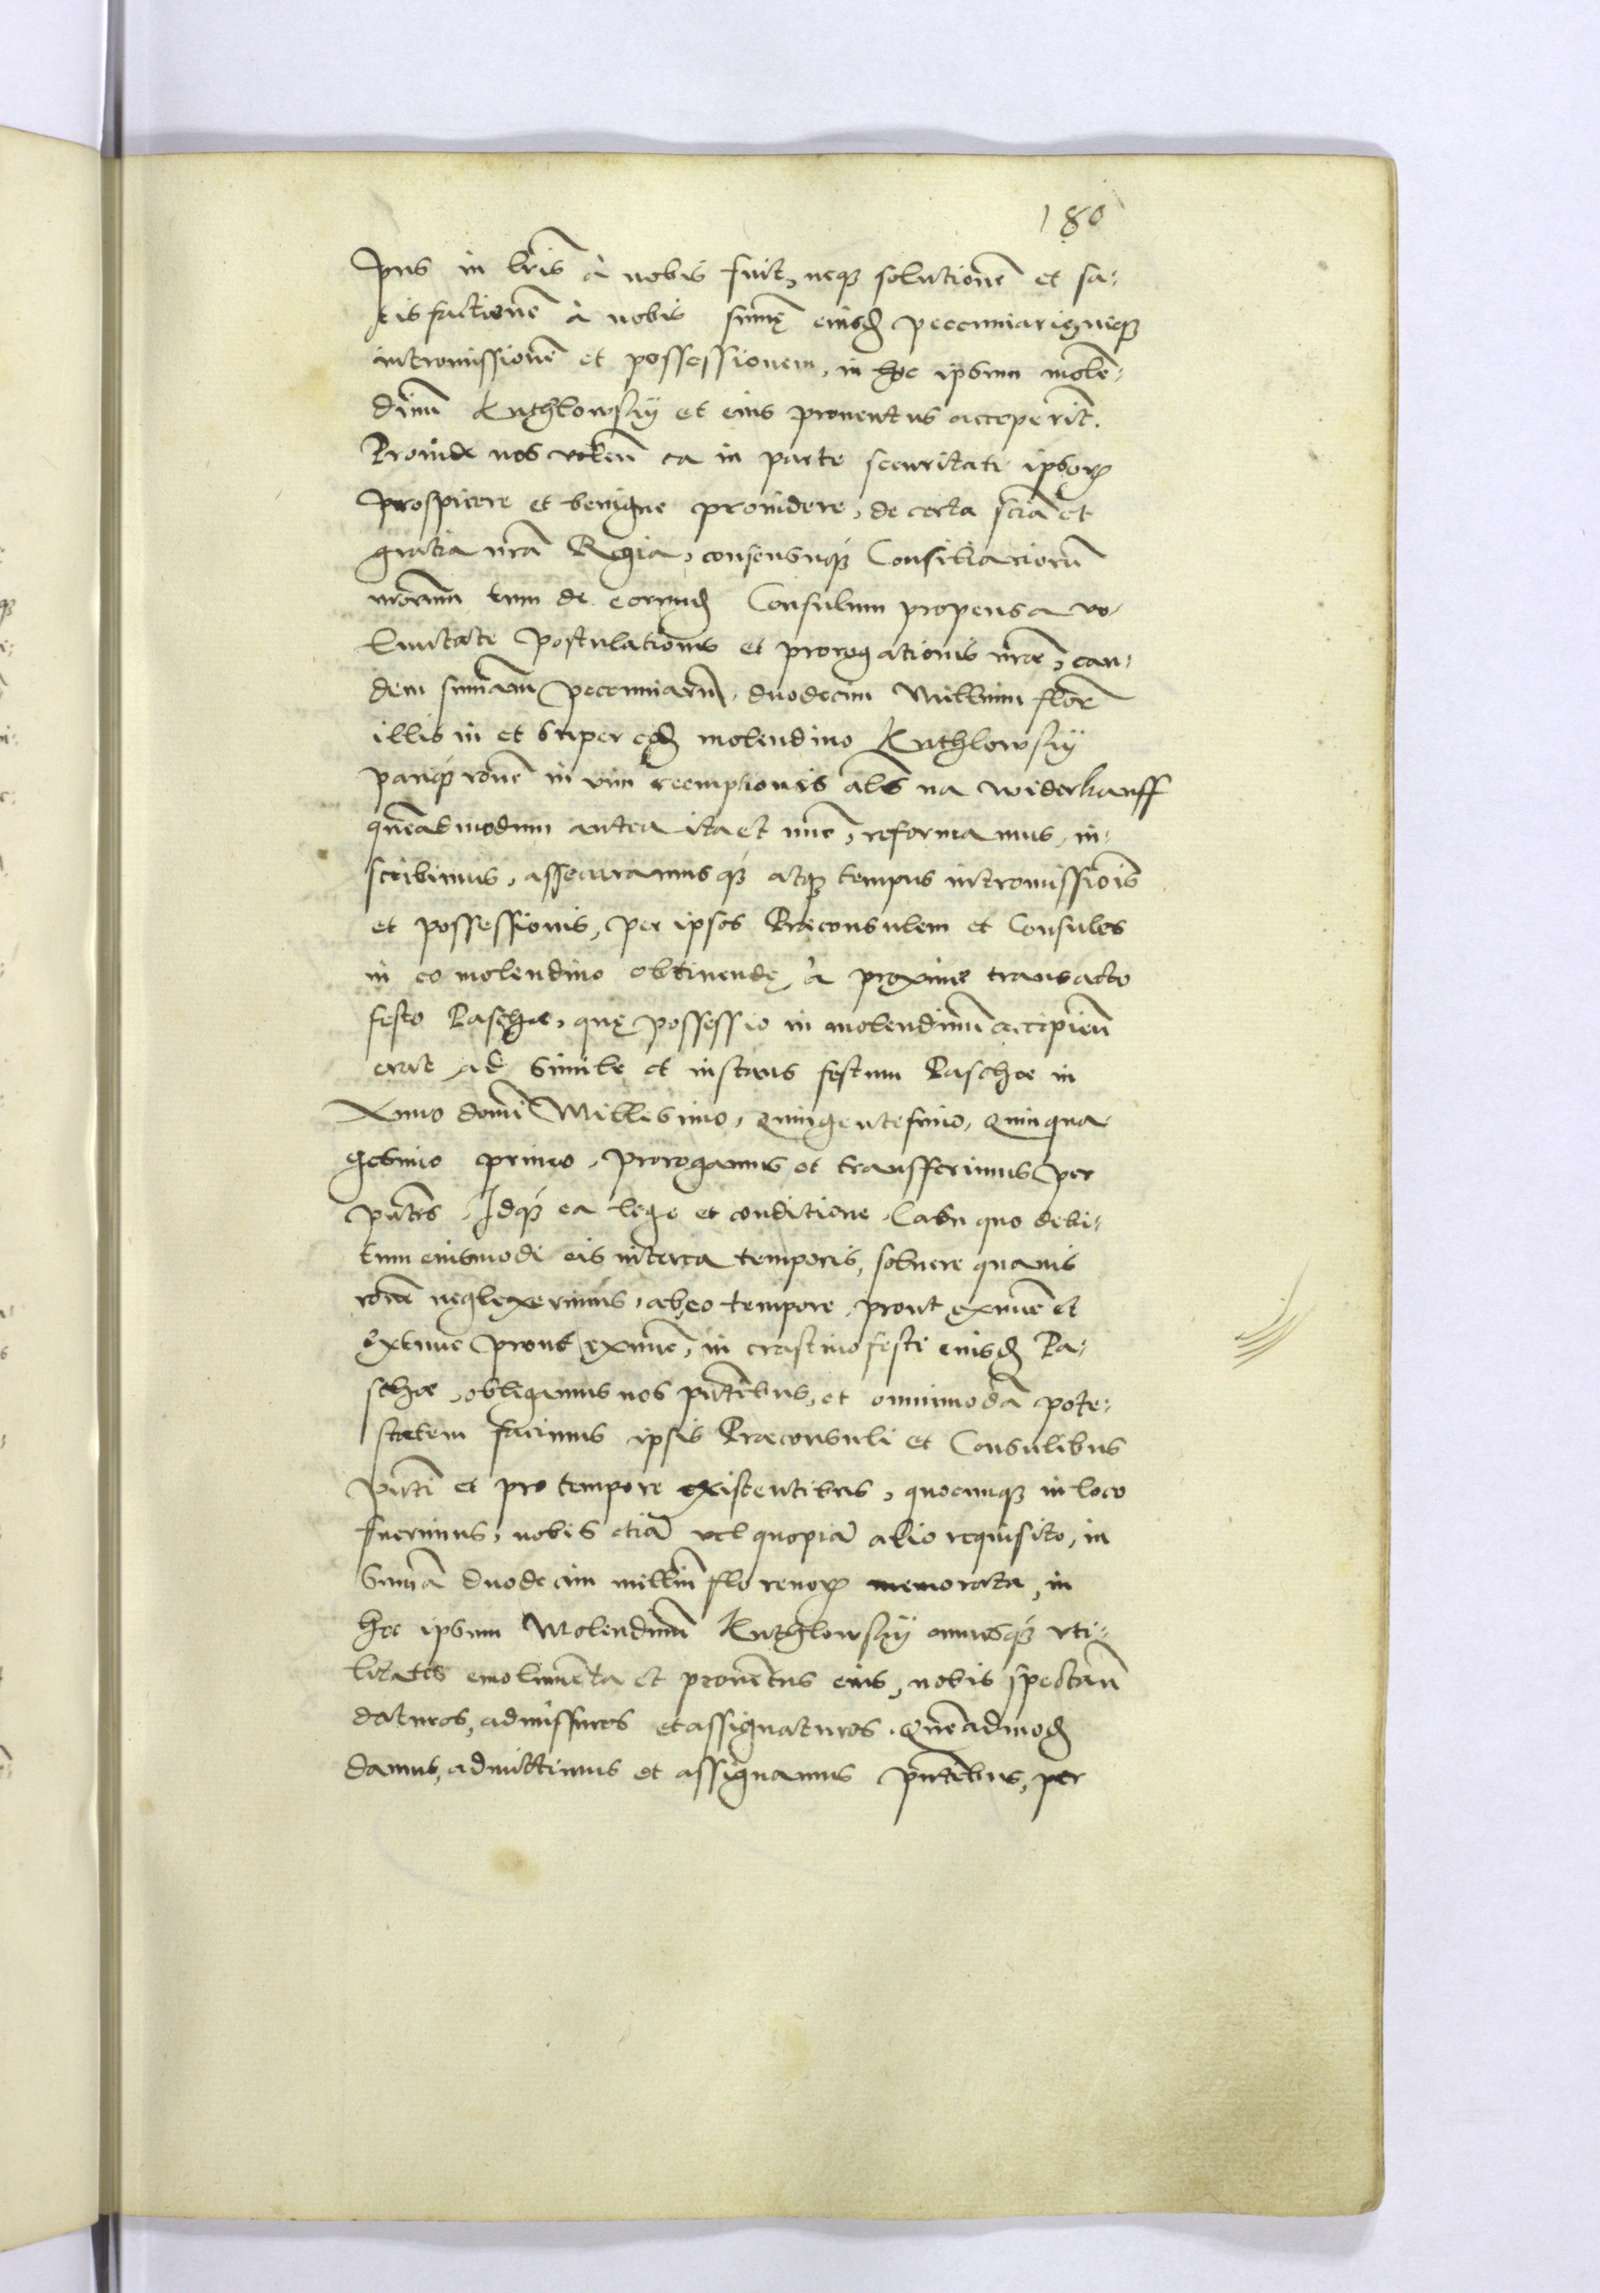 180
ipsis in lr̃is à nobis fuit, neq3 solutionẽ et sa-
tisfactionẽ à nobis sum̃ę eiusđ pecuniarię, neq3
intromissionẽ et possessionem, in hoc ipsum molẽ-
dinũ Kuthlowsky et eius prouentus acceperĩt.
Proinde nos volen̄ ea in parte securitati ipsoꝝ
prospicere et benigne prouidere, de certa sciã et
gratia nr̃a Regia, consensuq3 Consiliariorũ
nr̃orum tum de eorunđ Consulum propensa vo-
luntate postulationis et prorogationis nr̃ae, ean-
dem sum̃am pecuniarũ, duodecim Millium flor̃
illis in et super eođ molendino Kuthlowsky
pariq3 rõne in vim reemptionis al̃s na widerkauff
quẽadmodum antea ita et nũc, reformamus, in-
scribimus, assecuramusq3 atq3 tempus intromissiõis
et possessionis, per ipsos Praeconsulem et Consules
in eo molendino obtinendę, à proxime transacto
festo Paschae, quę possessio in molendinũ accipien̄
erat ad simile et instans festum Paschae in
Anno domĩ Millesimo, Quingentesimo, Quinqua
gesimo primo, prorogamus et transferimus per
pñtes. Idq3 ea lege et conditione. Casu quo debi-
tum eiusmodi eis interea temporis, soluere quauis
rõne neglexerimus, ab eo tempore prout exnũc et
extunc prout exnũc, in crastino festi eiusđ Pa-
schae, obligamus nos pñtibus, et omnimodã pote-
statem facimus ipsis Praeconsuli et Consulibus
pñti et pro tempore existentibus, quocunq3 in loco
fuerimus, nobis etiã vel quopiã alio requisito, in
sum̃a duodecim milliũ florenoꝝ memorata, in
hoc ipsum Molendinũ Kuthlowsky omnesq3 vti-
litates emolimẽta et prouẽtus eius, nobis spectan̄
daturos, admissuros et assignaturos. Quẽadmođ
damus, admittimus et assignamus pñtibus, per